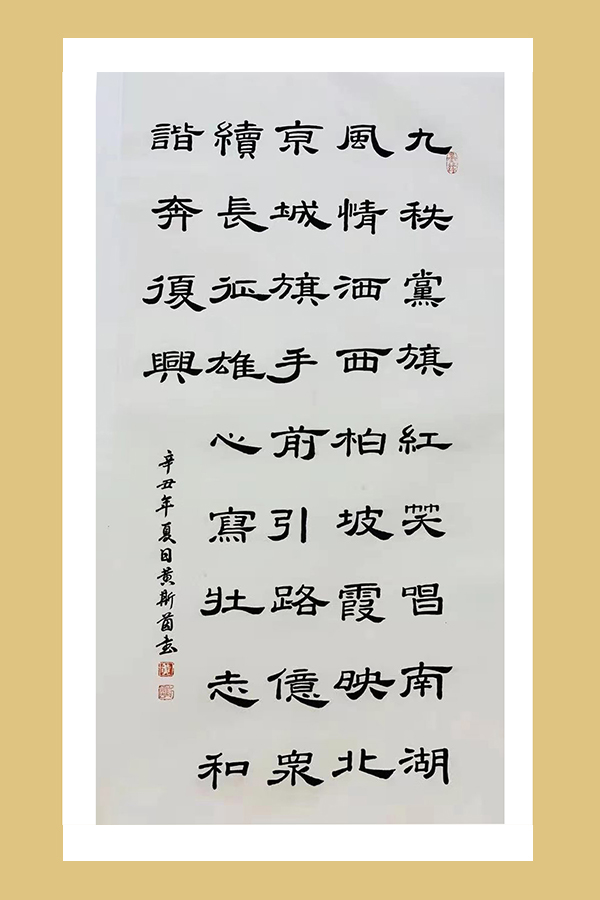 九秩黨旗紅笑唱南湖
風情洒西柏坡霞映北
京城旗手前引路億衆
續長征雄心寫壯志和
諧奔復興
辛丑年夏日黄斯茵書